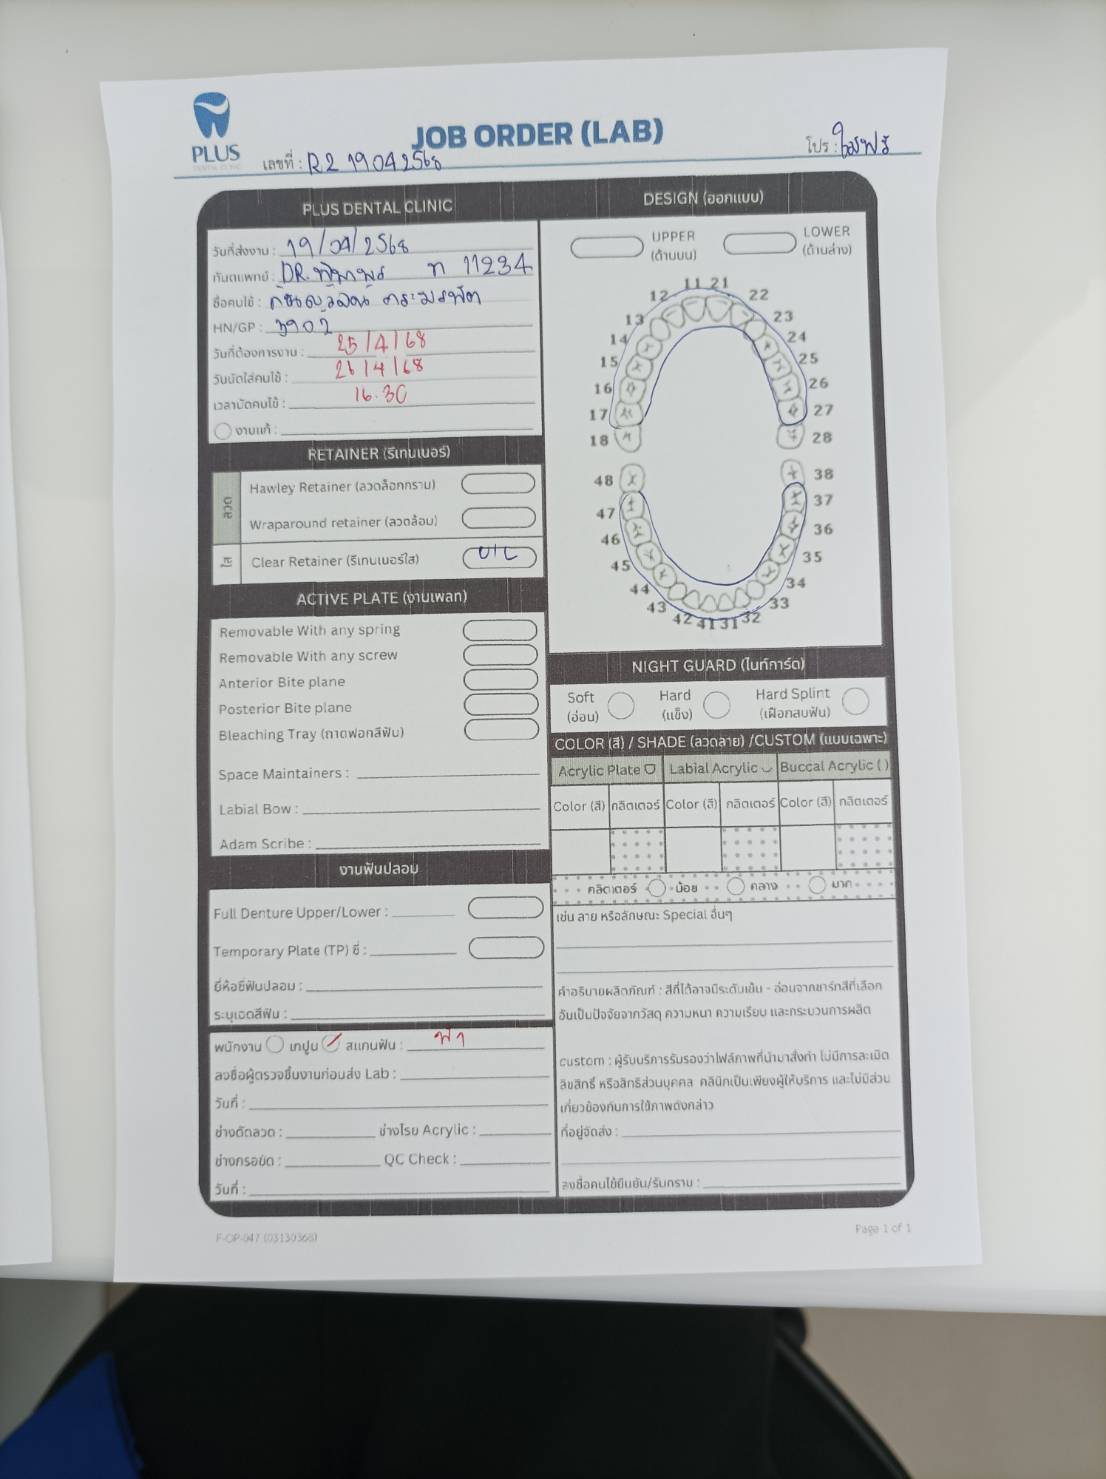 PLUS
JOB ORDER (LAB)
เลขที่ : R2 19042568
โปร :
PLUS DENTAL CLINIC
วันที่ส่งงาน : 19/04/2568
ทันตแพทย์ : DR. ท 11234
ชื่อคนไข้ :
HN/GP : 3902
วันที่ต้องการงาน : 25/4/68
วันนัดใส่คนไข้ : 26/4/68
เวลานัดคนไข้ : 16.30
งานแก้ :
RETAINER (รีเทนเนอร์)
ลวด
Hawley Retainer (ลวดล็อกกราม)
Wraparound retainer (ลวดล้อม)
ใส
Clear Retainer (รีเทนเนอร์ใส) U/L
ACTIVE PLATE (งานเพลท)
Removable With any spring
Removable With any screw
Anterior Bite plane
Posterior Bite plane
Bleaching Tray (ถาดฟอกสีฟัน)
Space Maintainers :
Labial Bow :
Adam Scribe :
งานฟันปลอม
Full Denture Upper/Lower :
Temporary Plate (TP) ซี่ :
ยี่ห้อซี่ฟันปลอม :
ระบุเฉดสีฟัน :
พิมพ์งาน เทปูน สแกนฟัน : ฟ้า
ลงชื่อผู้ตรวจชิ้นงานก่อนส่ง Lab :
วันที่ :
ช่างดัดลวด : ช่างโรย Acrylic :
ช่างกรอขัด : QC Check :
วันที่ :
DESIGN (ออกแบบ)
UPPER (ด้านบน)
LOWER (ด้านล่าง)
11 21
12 22
13 23
14 24
15 25
16 26
17 27
18 28
48 38
47 37
46 36
45 35
44 34
43 33
42 41 31 32
NIGHT GUARD (ไนท์การ์ด)
Soft (อ่อน)
Hard (แข็ง)
Hard Splint (เฝือกสบฟัน)
COLOR (สี) / SHADE (ลวดลาย) /CUSTOM (แบบเฉพาะ)
Acrylic Plate Labial Acrylic Buccal Acrylic ( )
Color (สี) กลิตเตอร์ Color (สี) กลิตเตอร์ Color (สี) กลิตเตอร์
กลิตเตอร์ น้อย กลาง มาก
เช่น ลาย หรือลักษณะ Special อื่นๆ
คำอธิบายผลิตภัณฑ์ : สีที่ได้อาจมีระดับเข้ม - อ่อนจากชาร์ทสีที่เลือก
อันเป็นปัจจัยจากวัสดุ ความหนา ความเรียบ และกระบวนการผลิต
custom : ผู้รับบริการรับรองว่าไฟล์ภาพที่นำมาสั่งทำ ไม่มีการละเมิด
ลิขสิทธิ์ หรือสิทธิส่วนบุคคล คลินิกเป็นเพียงผู้ให้บริการ และไม่มีส่วน
เกี่ยวข้องกับการใช้ภาพดังกล่าว
ที่อยู่จัดส่ง :
ลงชื่อคนไข้ยืนยัน/รับทราบ :
F-OP-047 (03130368)
Page 1 of 1